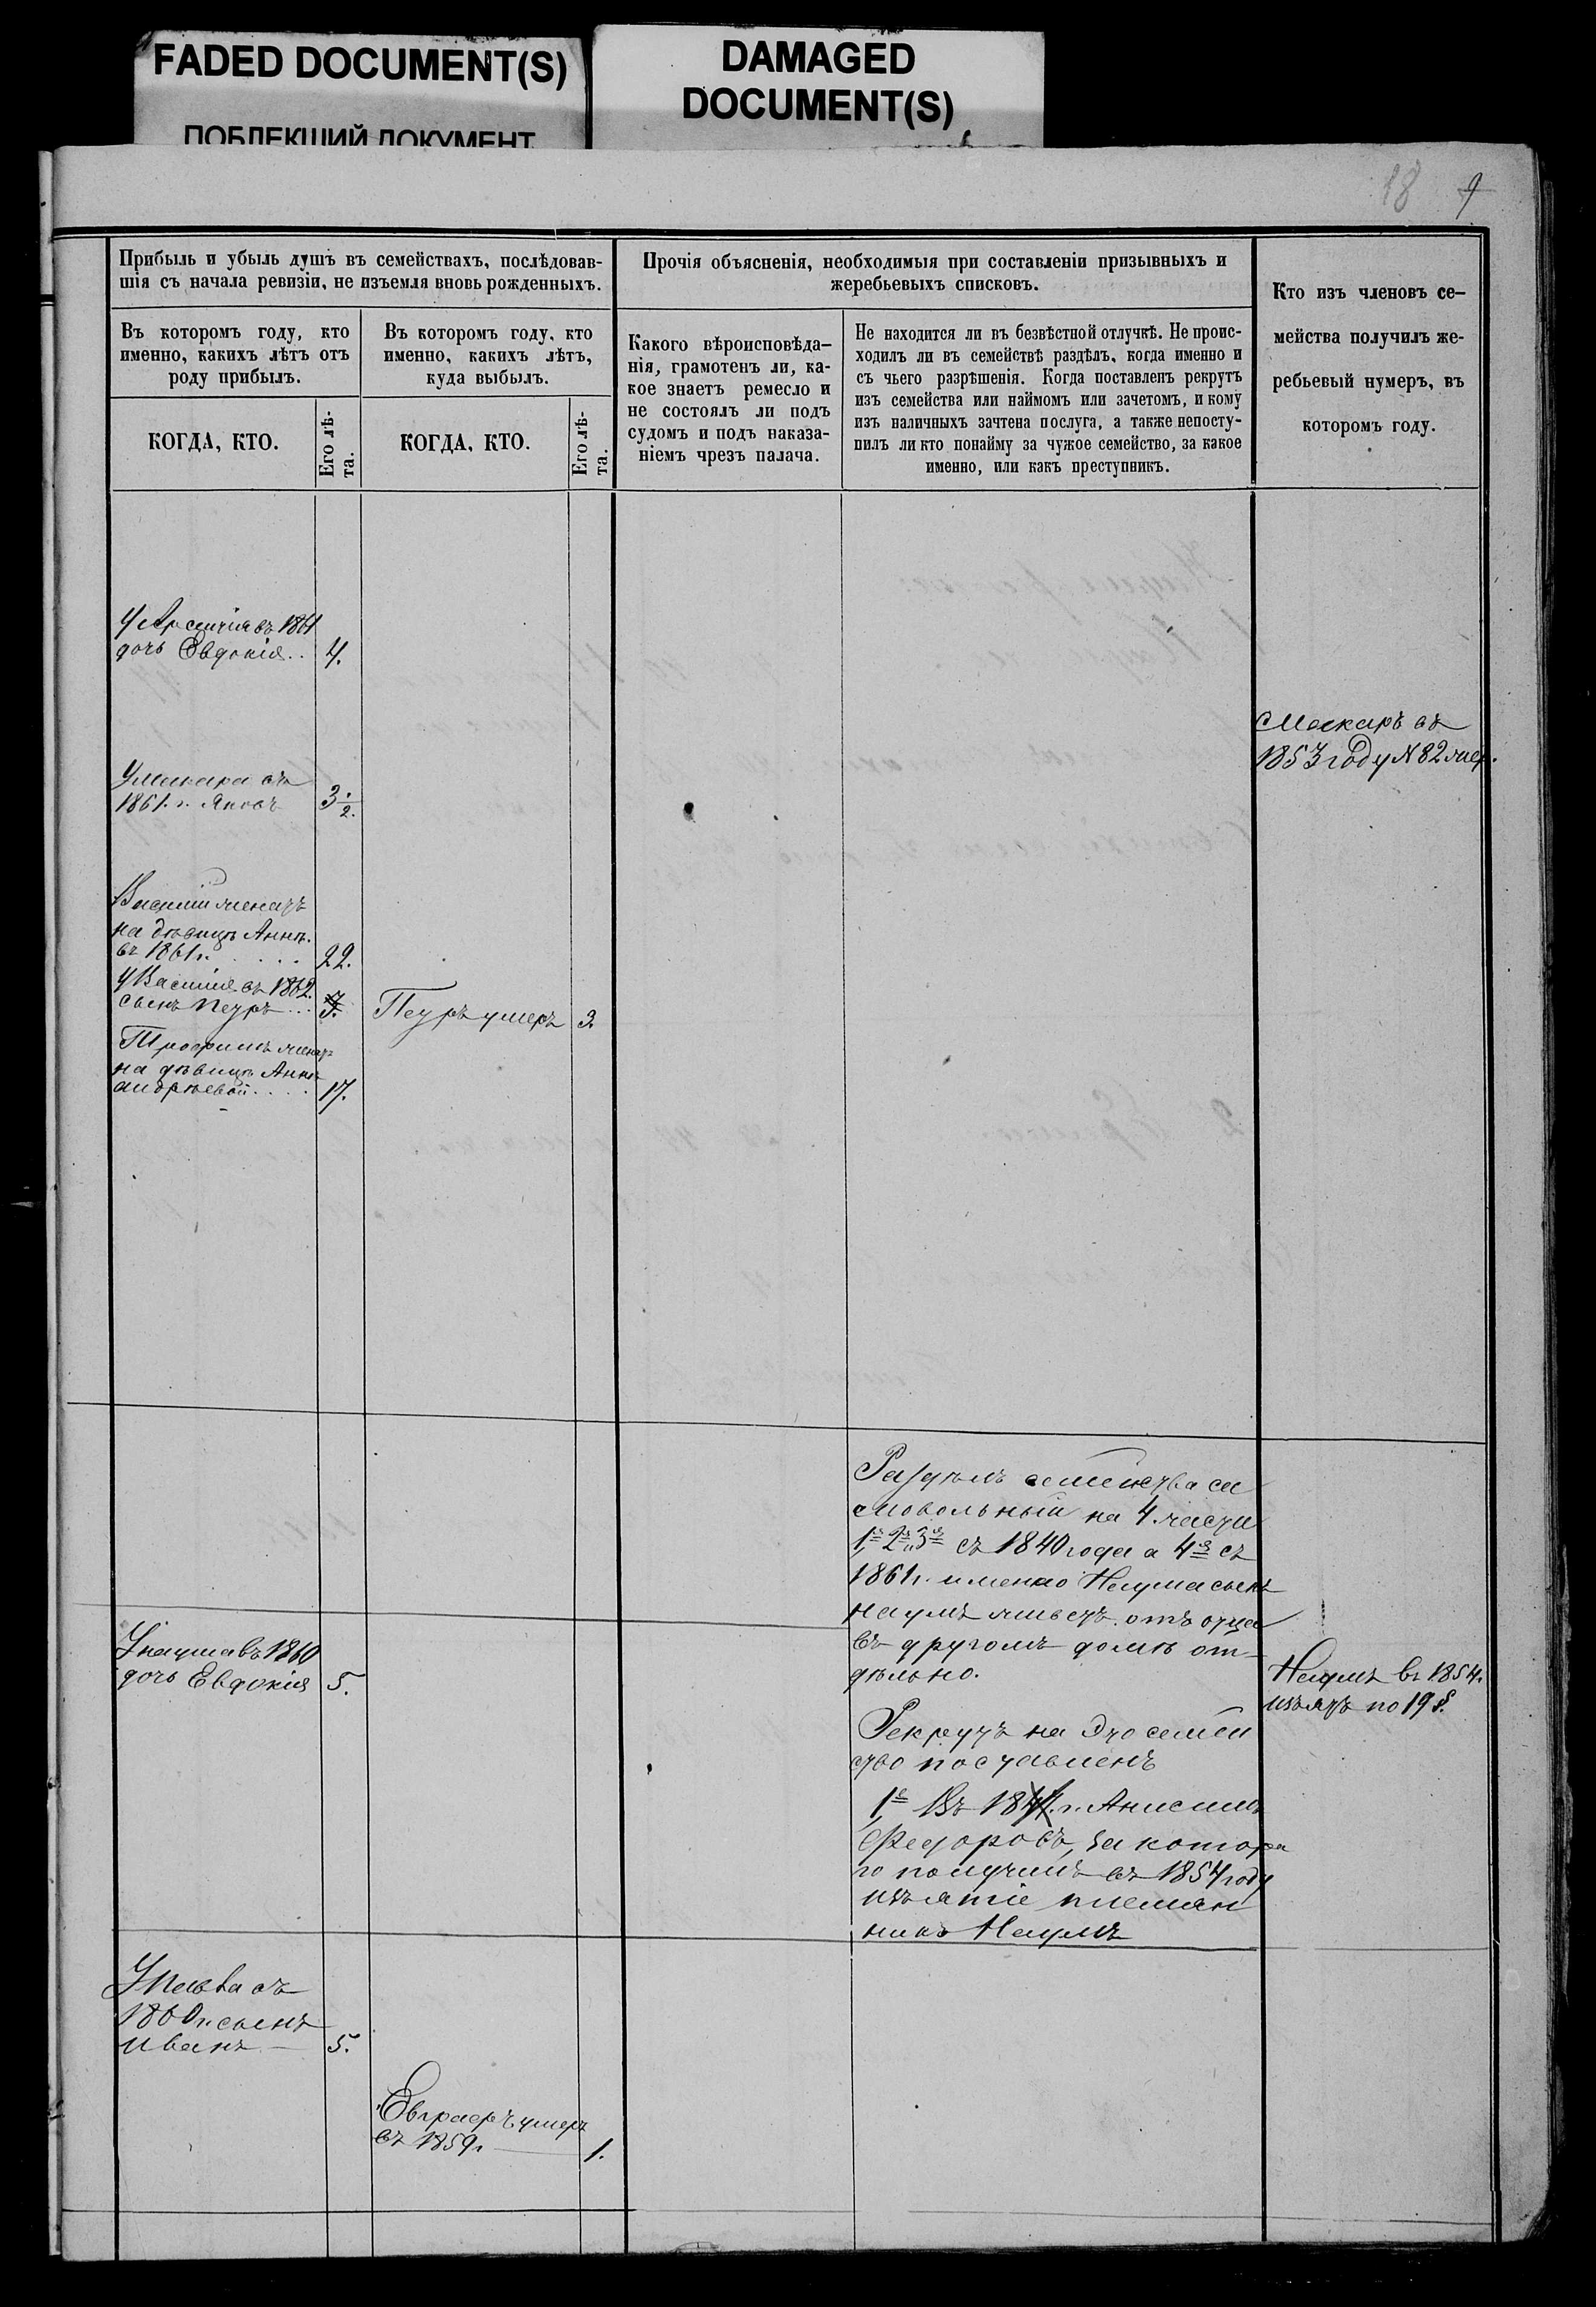 FADED DOCUMENT(S)
ПОБЛЕКШИЙ ДОКУМЕНТ
DAMAGED
DOCUMENT(S)
18 9
Прибыль и убыль душъ въ семействахъ, послѣдовав-
шія съ начала ревизіи, не изъемля вновь рожденныхъ.
Въ которомъ году, кто
именно, какихъ лѣтъ отъ
роду прибылъ.
КОГДА, КТО.
Его лѣ-
та.
Въ которомъ году, кто
именно, какихъ лѣтъ,
куда выбылъ.
КОГДА, КТО.
Его лѣ-
та.
Прочія объясненія, необходимыя при составленіи призывныхъ и
жеребьевыхъ списковъ.
Какого вѣроисповѣда-
нія, грамотенъ ли, ка-
кое знаетъ ремесло и
не состоялъ ли подъ
судомъ и подъ наказа-
ніемъ чрезъ палача.
Не находится ли въ безвѣстной отлучкѣ. Не проис-
ходилъ ли въ семействѣ раздѣлъ, когда именно и
съ чьего разрѣшенія. Когда поставленъ рекрутъ
изъ семейства или наймомъ или зачетомъ, и кому
изъ наличныхъ зачтена послуга, а также непосту-
пилъ ли кто понайму за чужое семейство, за какое
именно, или какъ преступникъ.
Кто изъ членовъ се-
мейства получилъ же-
ребьевый нумеръ, въ
которомъ году.
У Арсенія въ 1861
дочь Евдокія.. 4.
Макаръ въ
1853 году N 82 жер.
У Макара въ
1861. г. Яковъ 3 1/2.
Василій женатъ
на дѣвицѣ Аннѣ.
въ 1861 г. . . . . 22.
У Василія въ 1862.
сынъ Петръ... 3.
Петръ умеръ 3.
Трофимъ женат
на дѣвицѣ Аннѣ
Андрѣевой. . . . 17.
Раздѣлъ семейства са
мовольный на 4. части
1я 2я и 3я съ 1840 года а 4я съ
1861 г. именно Наума сынъ
Наумъ живетъ отъ отца
въ другомъ домѣ от-
дѣльно.
У Наума въ 1860
дочь Евдокія 5.
Наумъ въ 1854.
изъятъ по 19 §.
Рекрутъ на это семей
ство поставленъ
1е Въ 1841. г. Анисимъ
Федоровъ, за котора
го получилъ въ 1854 году
изъятіе племян
никъ Наумъ
У Павла въ
1860 г. сынъ
Иванъ — 5.
Евграфъ умеръ
въ 1859 г. 1.